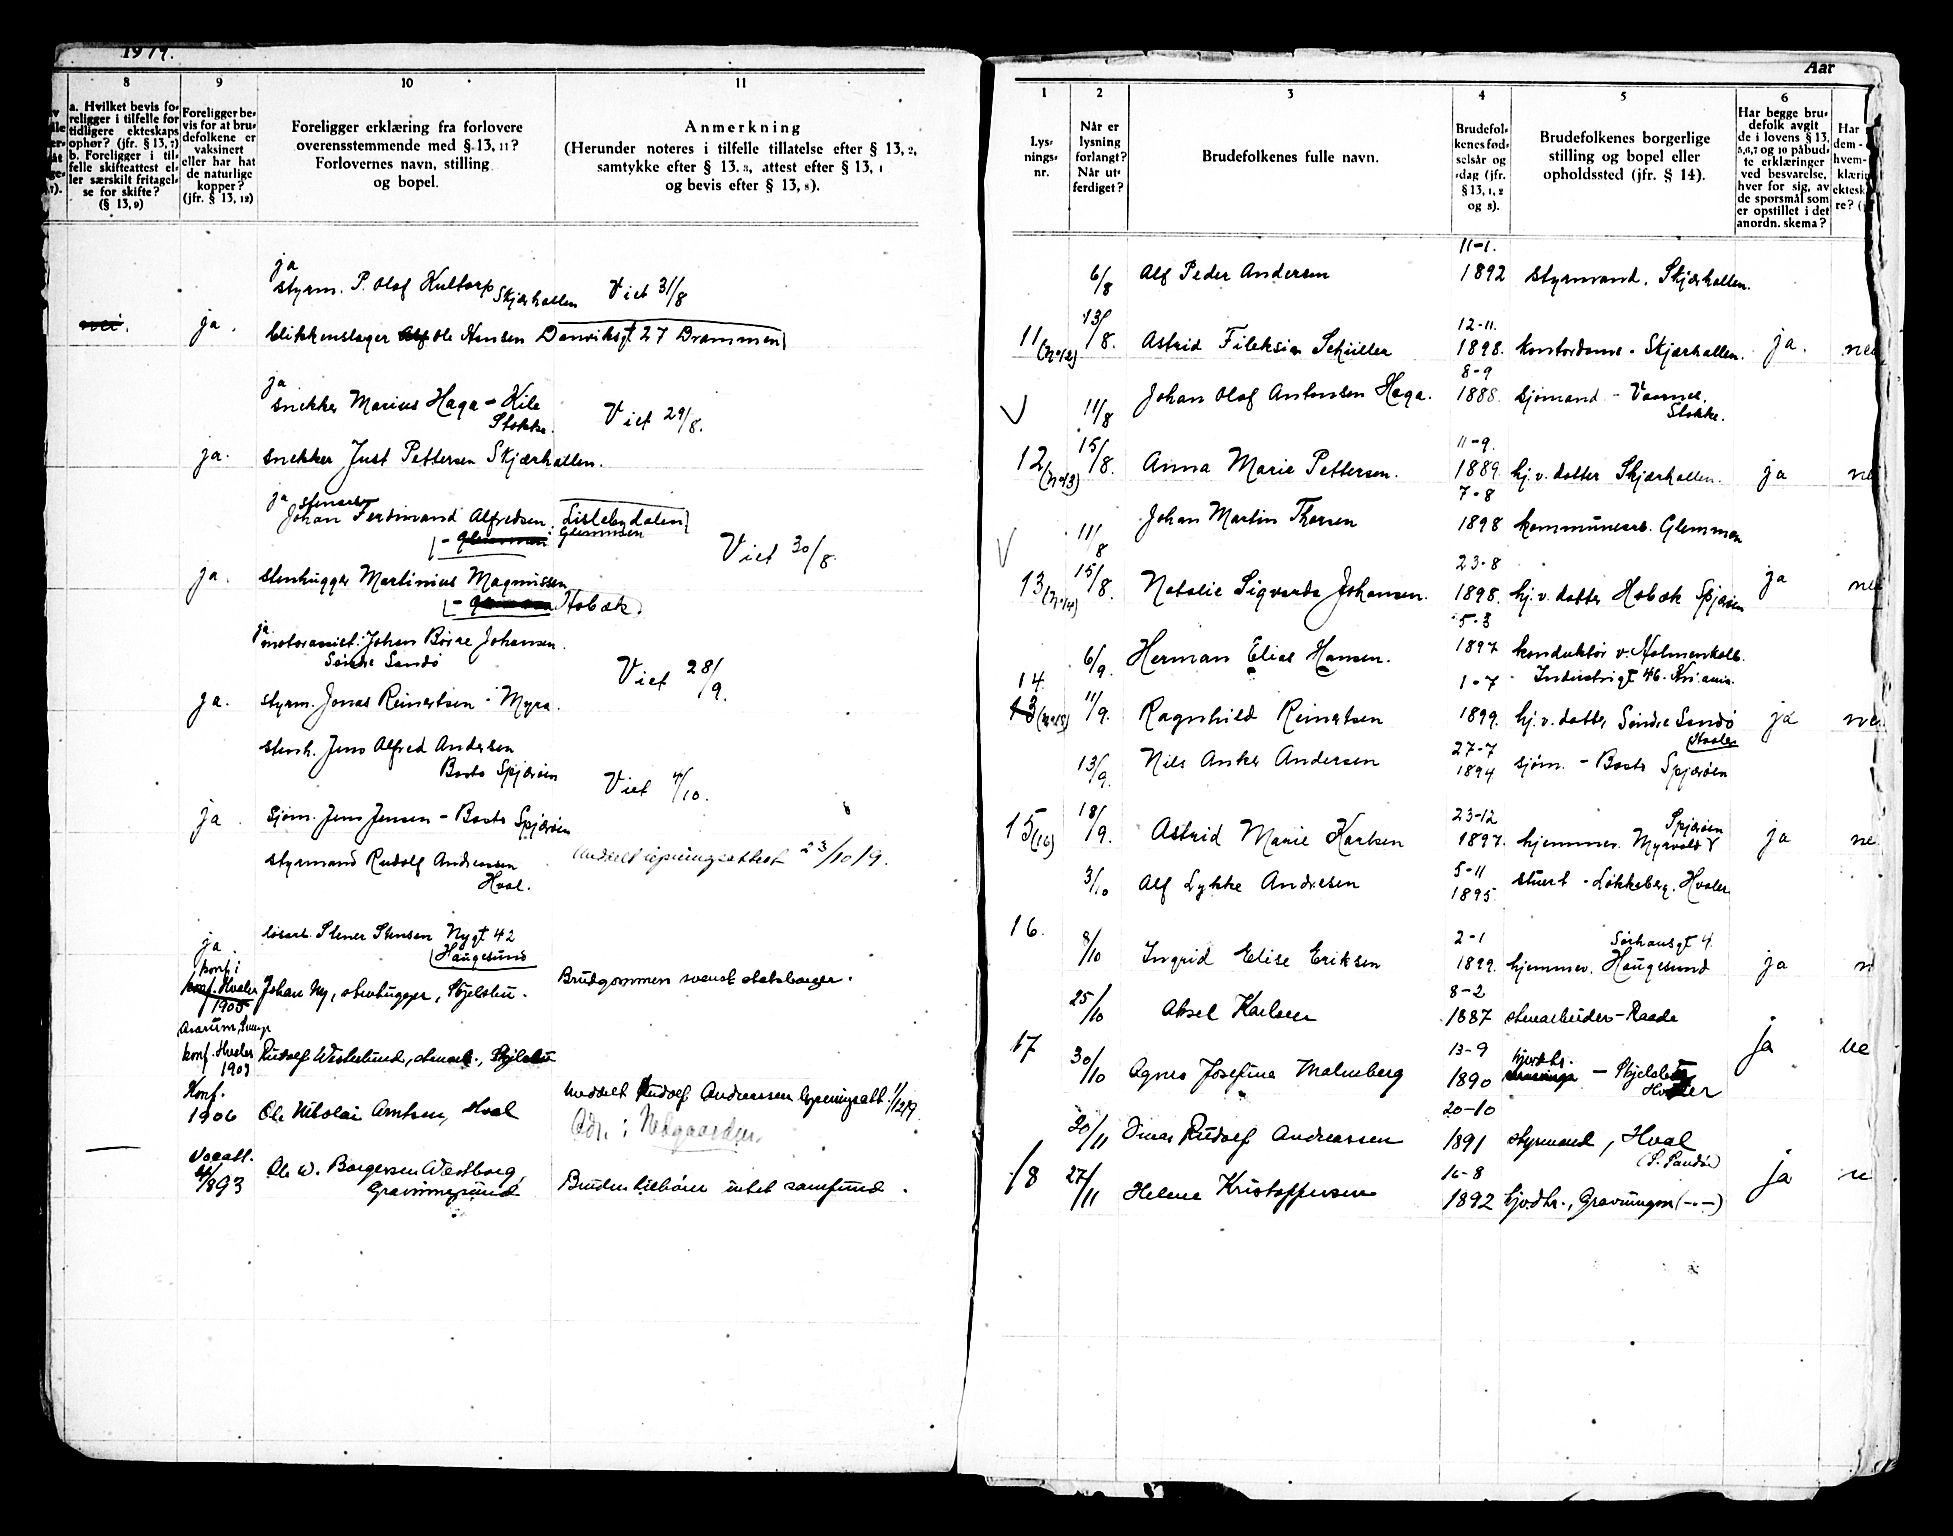 1919.
8
9
10
11
a. Hvilket bevis fo-
religger i tilfelle for
tidligere ekteskaps
ophør? (jfr. § 13, 7)
b. Foreligger i til-
felle skifteattest el-
ler særskilt fritagel-
se for skifte?
(§ 13, 9)
Foreligger be-
vis for at bru-
defolkene er
vaksinert
eller har hat
de naturlige
kopper?
(jfr. § 13, 12)
Foreligger erklæring fra forlovere
overensstemmende med §.13, 11?
Forlovernes navn, stilling
og bopel.
Anmerkning
(Herunder noteres i tilfelle tillatelse efter § 13, 2,
samtykke efter § 13. 3, attest efter § 13, 1
og bevis efter § 13, 8).
ja
styrm. P. Olaf Kultorp Skjærhallen Viet 31/8
nei. ja. blikkenslager Ole Hansen Danviksgt 27 Drammen
ja
snekker Marius Haga - Kile
Stokke. Viet 29/8.
ja. snekker Just Pettersen Skjærhallen.
ja stenarb
Johan Ferdinand Alfredsen. Lislebydalen
Glemmen
Viet 30/8
ja. stenhugger Martinius Magnussen
Hobæk
ja motorassist. Johan Børre Johansen.
Søndre Sandø Viet 28/9.
ja. styrm. Jonas Reinertsen - Myra.
stenh. Jens Alfred Andersen
Basto Spjærøen Viet 4/10.
ja. sjøm. Jens Jensen - Basto Spjærøen
styrmand Rudolf Andreassen
Hval. Uddelt lysningsattest 23/10 19.
ja løsarb. Stener Stensen Nygt 42
Haugesund
konf. i
konf. Hvaler
1905 Johan Ny, stenhugger, Skjelsbu. Brudgommen svensk statsborger.
konf. Hvaler
1907 Rudolf Westerlund, stenarb., Skjelsbu
Konf.
1906 Ole Nikolai Arntsen, Hval Meddelt Rudolf Andreassen lysningsatt. 1/12 19.
Adr.: Nedgaarden.
Vacatt.
1893 Ole W. Borgersen Westborg,
Gravningsund Bruden tilhører intet samfund.
Aar
1
2
3
4
5
6
Lys-
nings-
nr.
Når er
lysning
forlangt?
Når ut-
ferdiget?
Brudefolkenes fulle navn.
Brudefol-
kenes fød-
selsår og
-dag (jfr.
§ 13, 1, 2
og 3).
Brudefolkenes borgerlige
stilling og bopel eller
opholdssted (jfr. § 14).
Har begge bru-
defolk avgit
de i lovens § 13,
5,6,7 og 10 påbud-
te erklæringer
ved besvarelse,
hver for sig, av
de spørsmål som
er opstillet i det
anordn. skema?
Har
dem-
hvem-
klærin
ektesk
re? (
6/8 Alf Peder Andersen 11-1. 1892 styrmand. Skjærhallen.
11 (No 12) 13/8. Astrid Fileksia Schüller 12-11. 1898. kontordame - Skjærhallen. ja. nei
11/8 Johan Olaf Antonsen Haga. 8-9 1888. sjømand - Vaarnes.
Stokke.
12 (No 13) 15/8. Anna Marie Pettersen. 11-9. 1889. hj. v. datter Skjærhallen. ja ne
11/8 Johan Martin Thorsen 7-8 1898 kommunearb. Glemmen
13 (No 14) 15/8. Natalie Sigvarda Johansen. 23-8 1898. hj. v. datter Hobæk Spjærøen ja ne
6/9 Herman Elias Hansen. 5-3 1897 konduktør v. Holmenkolb.
Industrigt 46. Kr.ania.
14
13 (No 15) 11/9. Ragnhild Reinertsen 1-7 1899. hj. v. datter Søndre Sandø ja nei
Hvaler
13/9. Nils Anker Andersen 27-7 1894 sjøm. - Basto Spjærøen
15 (16) 18/9. Astrid Marie Karlsen 23-12 1897. hjemmev. Myrvold Spjærøen ja ne
3/10 Alf Lykke Andresen 5-11 1895 stuert - Løkkeberg. Hvaler
16. 8/10 Ingrid Elise Eriksen 2-1 1899. hjemmev. Sørhausgt 4.
Haugesund ja n
25/10 Aksel Karlsen 8-2 1887 stenarbeider - Raade
17 30/10 Agnes Josefine Malmberg 13-9 1890 - Skjelsbu
Hvaler ja ne
20/11 Einar Rudolf Andreassen 20-10 1891 styrmand, Hval
(S. Sandø)
18 27/11 Helene Kristoffersen 16-8 1892 hj.v.dtr., Gravningen (-"-) ja ne